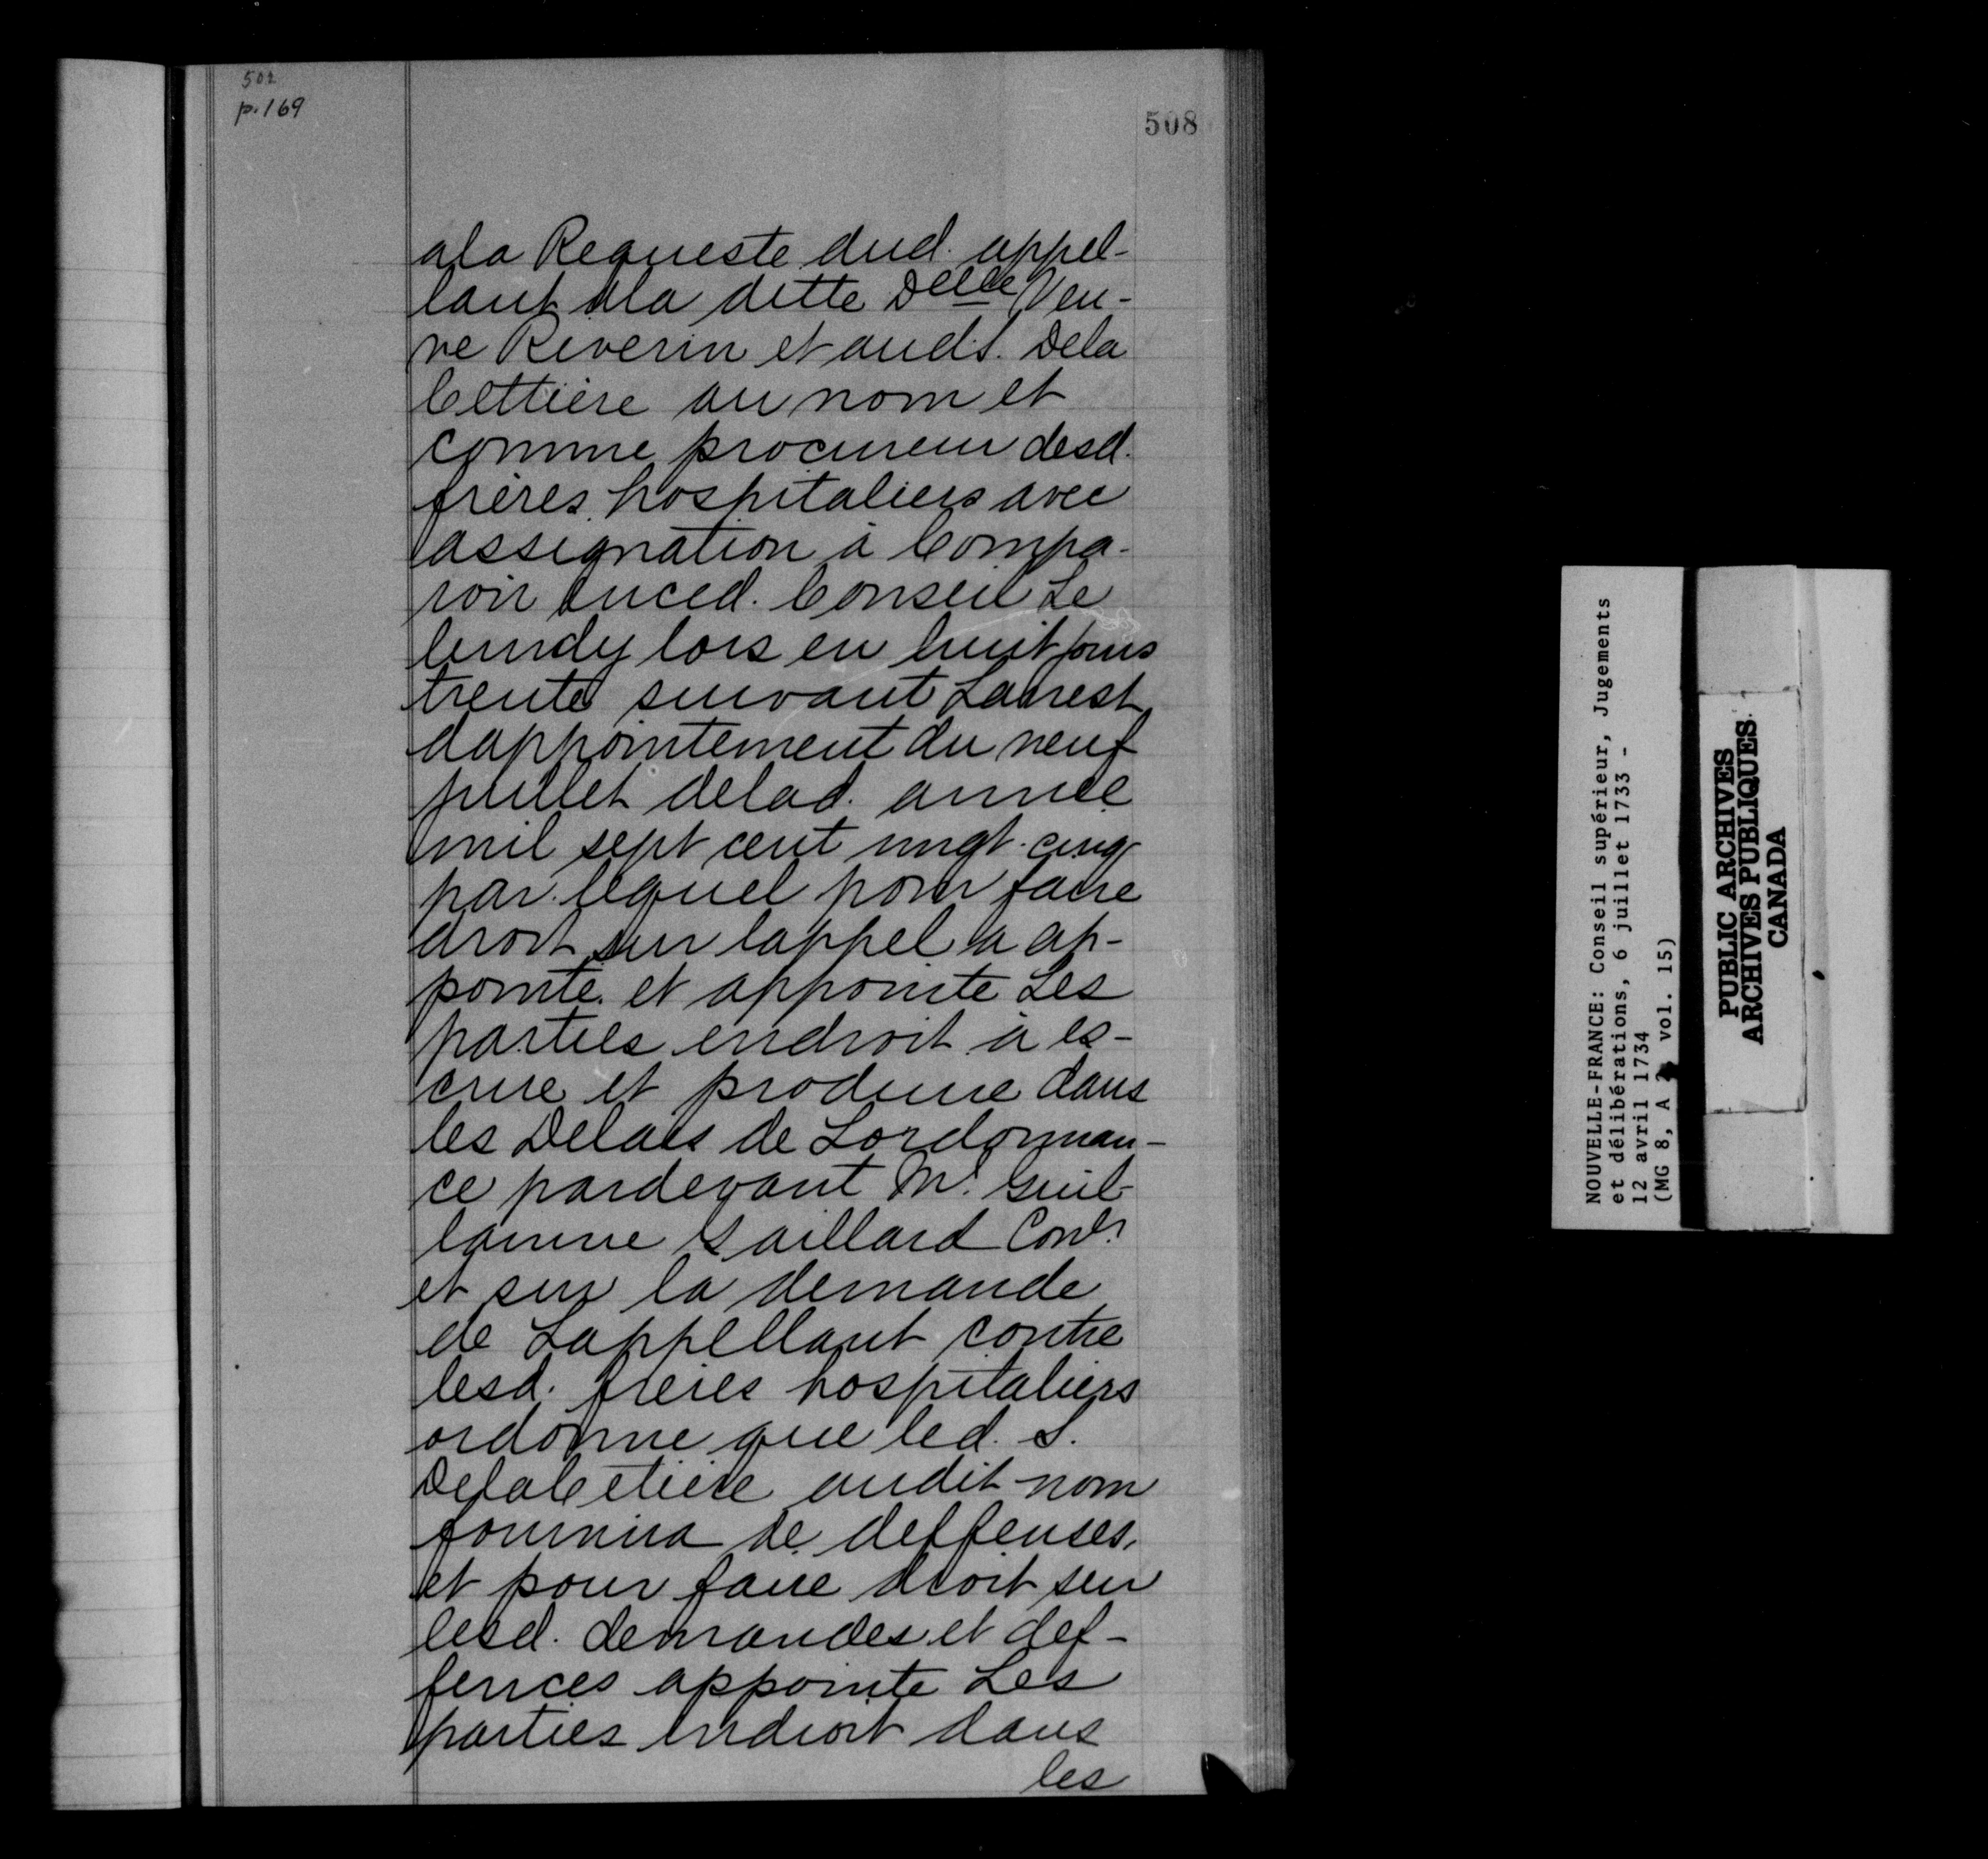 502
p. 169
508
ala Requeste dud. appel-
lant ala ditte Delle Veu-
ve Riverin et aud. S. Dela
Cettiere au nom et
comme procureur desd.
frères hospitaliers avec
assignation à Compa-
roir enced. Conseil Le
lundy lors en huit jours
trente suivant Larrest
dappointement du neuf
juillet delad. année
mil sept cent vingt-cinq
par lequel pour faire
droit sur lappel a ap-
pointé et appointe Les
parties endroit à es-
crire et produire dans
les Delais de Lordonnan-
ce pardevant Mr. Guil-
laume Gaillard Conler
et sur la demande
de Lappellant contre
lesd. frères hospitaliers
ordonne que led. S.
DelaCetiere audit nom
fournira de deffenses,
et pour faire droit sur
lesd. demandes et def-
fences appointe Les
parties endroit dans
les
NOUVELLE-FRANCE: Conseil supérieur, Jugements
et délibérations, 6 juillet 1733 -
12 avril 1734
(MG 8, A vol. 15)
PUBLIC ARCHIVES
ARCHIVES PUBLIQUES
CANADA